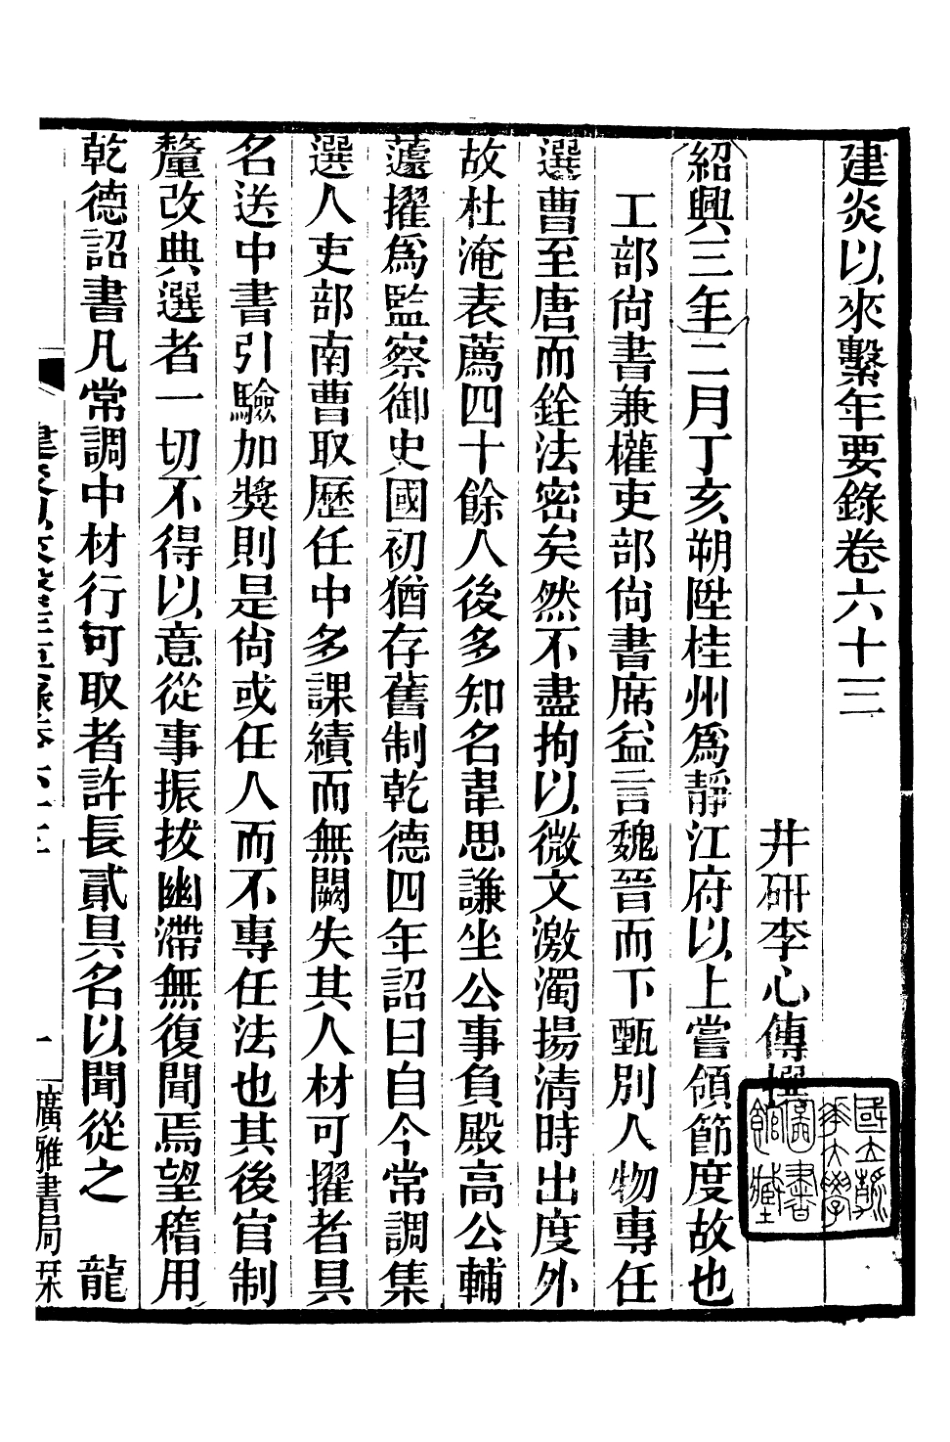 建炎以來繫年要錄卷六十三
井研李心傳撰
紹興三年二月丁亥朔陞桂州爲靜江府以上嘗領節度故也
工部尙書兼權吏部尙書席益言魏晉而下甄別人物專任
選曹至唐而銓法密矣然不盡拘以微文激濁揚清時出度外
故杜淹表薦四十餘人後多知名韋思謙坐公事負殿高公輔
薳擢爲監察御史國初猶存舊制乾德四年詔曰自今常調集
選人吏部南曹取歷任中多課績而無闕失其人材可擢者具
名送中書引驗加獎則是尙或任人而不專任法也其後官制
釐改典選者一切不得以意從事振拔幽滯無復聞焉望稽用
乾德詔書凡常調中材行可取者許長貳具名以聞從之　龍
建炎以來繫年要錄卷六十三　一　廣雅書局栞
國立清華大學圖書館藏